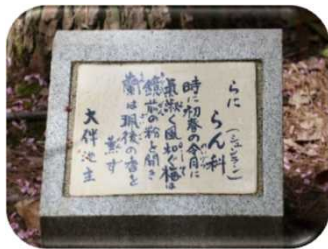 らに
らん科
(シュンラン)
時に初春の令月に
氣淑く風和ぐ梅は
鏡前の粉と開き
蘭は珮後の香を
薫す
大伴池主